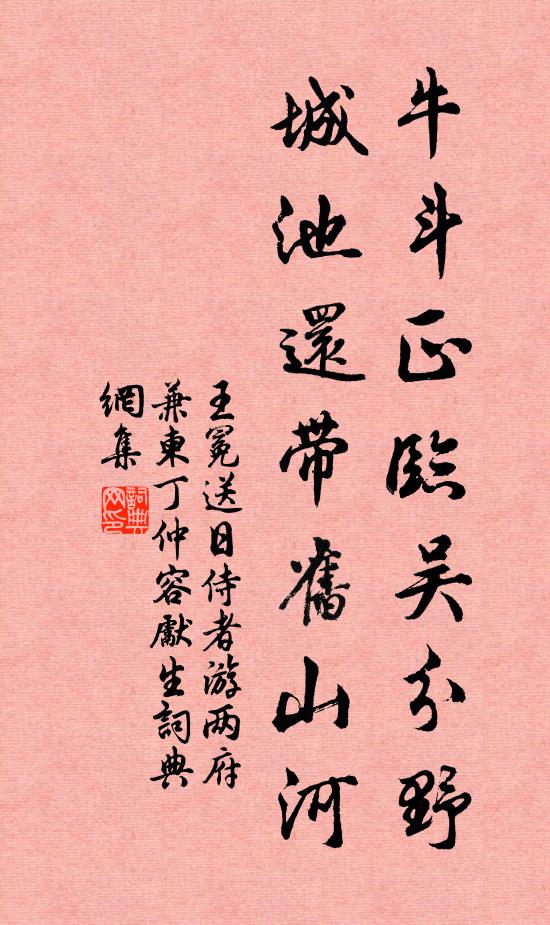 牛斗正臨吴分野
城池還带舊山河
王冕送日侍者游两府
兼東丁仲容獻生詞典
網集
詞典网印